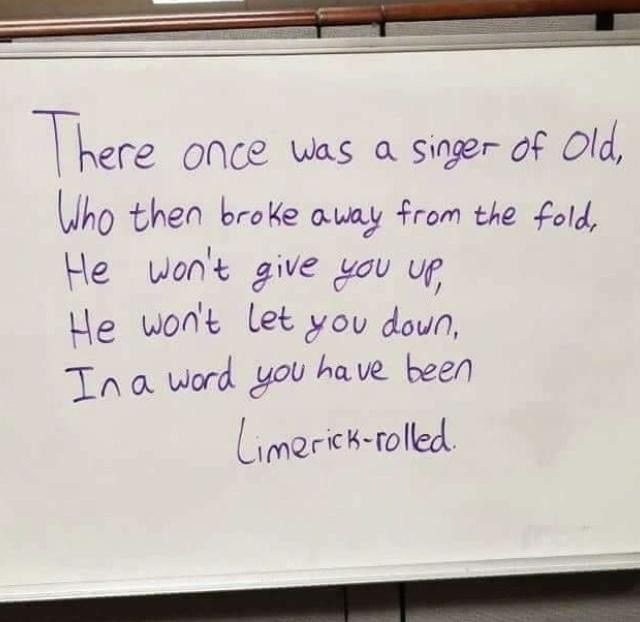 There once was a singer of old,
Who then broke away from the fold,
He won't give you up,
He won't let you down,
In a word you have been
Limerick-rolled.